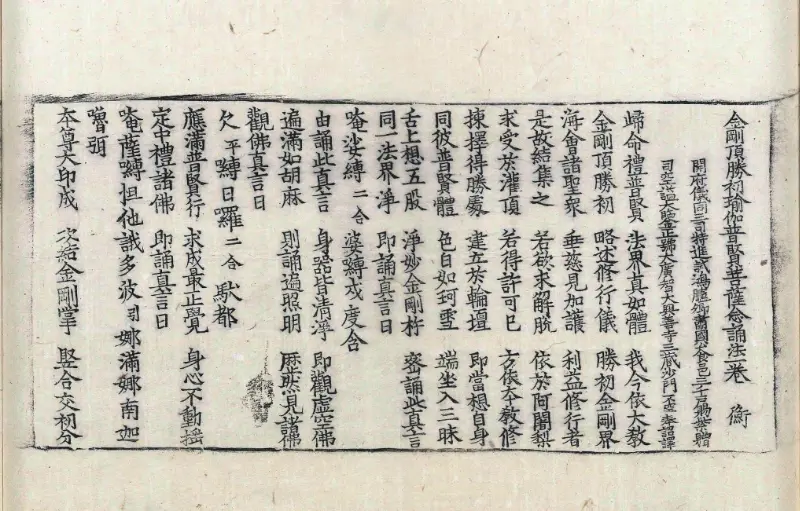 金剛頂勝初瑜伽普賢菩薩念誦法一卷 衡
開府儀同三司特進試鴻臚卿肅國公食邑三千戶賜紫贈
司空謚大鑒正號大廣智大興善寺三藏沙門不空奉詔譯
歸命禮普賢 法界真如體 我今依大教
金剛頂勝初 略述修行儀 勝初金剛界
海會諸聖衆 垂慈見加護 利益修行者
是故結集之 若欲求解脫 依於阿闍梨
求受於灌頂 若得許可已 方依本教修
揀擇得勝處 建立於輪壇 即當想自身
同彼普賢體 色白如珂雪 端坐入三昧
舌上想五股 淨妙金剛杵 密誦此真言
同一法界淨 即誦真言曰
唵娑嚩二合 婆嚩戍度含
由誦此真言 身器皆清淨 即觀虛空佛
遍滿如胡麻 則誦遍照明 歷然見諸佛
觀佛真言曰
欠平嚩日囉二合 馱都
應滿普賢行 求成最正覺 身心不動搖
定中禮諸佛 即誦真言曰
唵薩嚩怛他誐多波引娜滿娜南迦
嚕弭
本尊大印成 次結金剛掌 竪合交初分